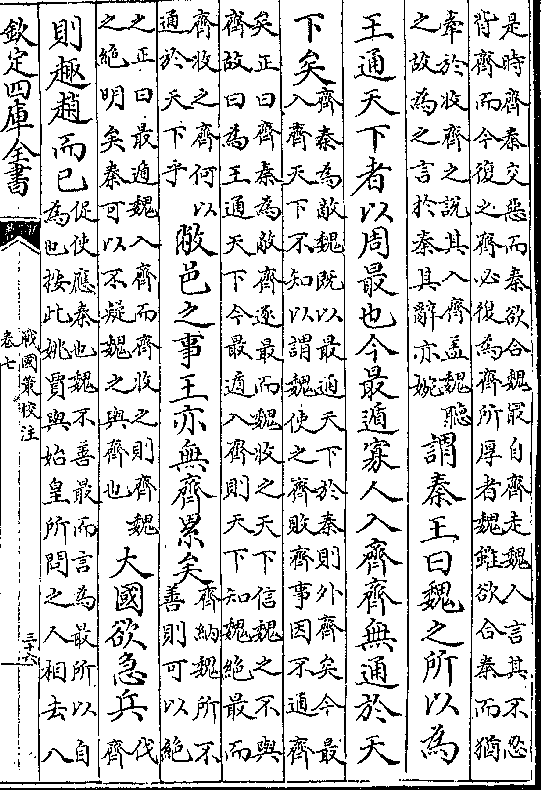 是時齊秦交惡而秦欲合魏最自齊走魏入言其不忍
背齊而今復之齊必復為齊所厚者魏雖欲合秦而猶
牽於收齊之說其入齊盖魏
之故為之言於秦其辭亦婉
聽謂秦王曰魏之所以為
王通天下者以周最也今最遁寡人入齊齊無通於天
下矣
齊秦為敵魏既以最通天下於秦則外齊矣今最
入齊天下不知以謂魏使之齊敗齊事因不通齊
矣正曰齊秦為敵齊逐最而魏收之天下信魏之不與
齊故曰為王通天下今最遁入齊則天下知魏絶最而
齊收之齊何以
通於天下乎
敝邑之事王亦無齊累矣
齊納魏所不
善則可以絶
之正曰最遁魏入齊而齊收之則齊魏
之絶明矣秦可以不疑魏之與齊也
大國欲急兵
伐
齊
則趣趙而已
促使應秦也魏不善最而言為最所以自
為也按此姚賈與始皇所問之人相去八
欽定四庫全書
戰國策校注
卷七
三十六